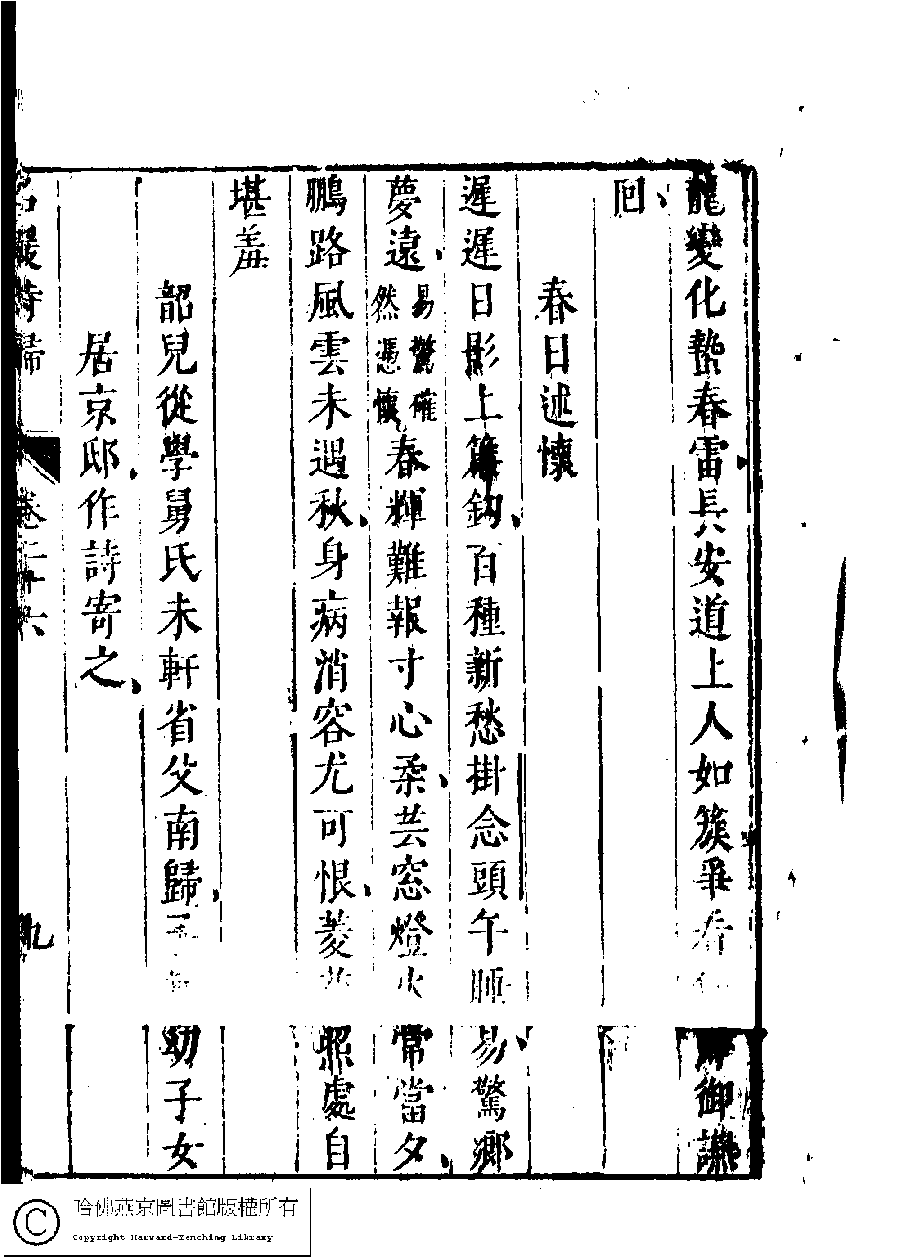 龍變化蟄春雷長安道上人如簇爭看御讌
回
春日述懷
遲遲日影上簾鈎百種新愁掛念頭午睡易驚鄉
夢遠易驚確然憑懷春輝難報寸心柔芸窓燈火常當夕
鵬路風雲未遇秋身病消容尤可恨菱花照處自
堪羞
韶兒從學舅氏未軒省父南歸幼子女
居京邸作詩寄之
名媛詩歸
卷二十六
九
哈佛燕京圖書館版權所有
Copyright Harvard-Yenching Library